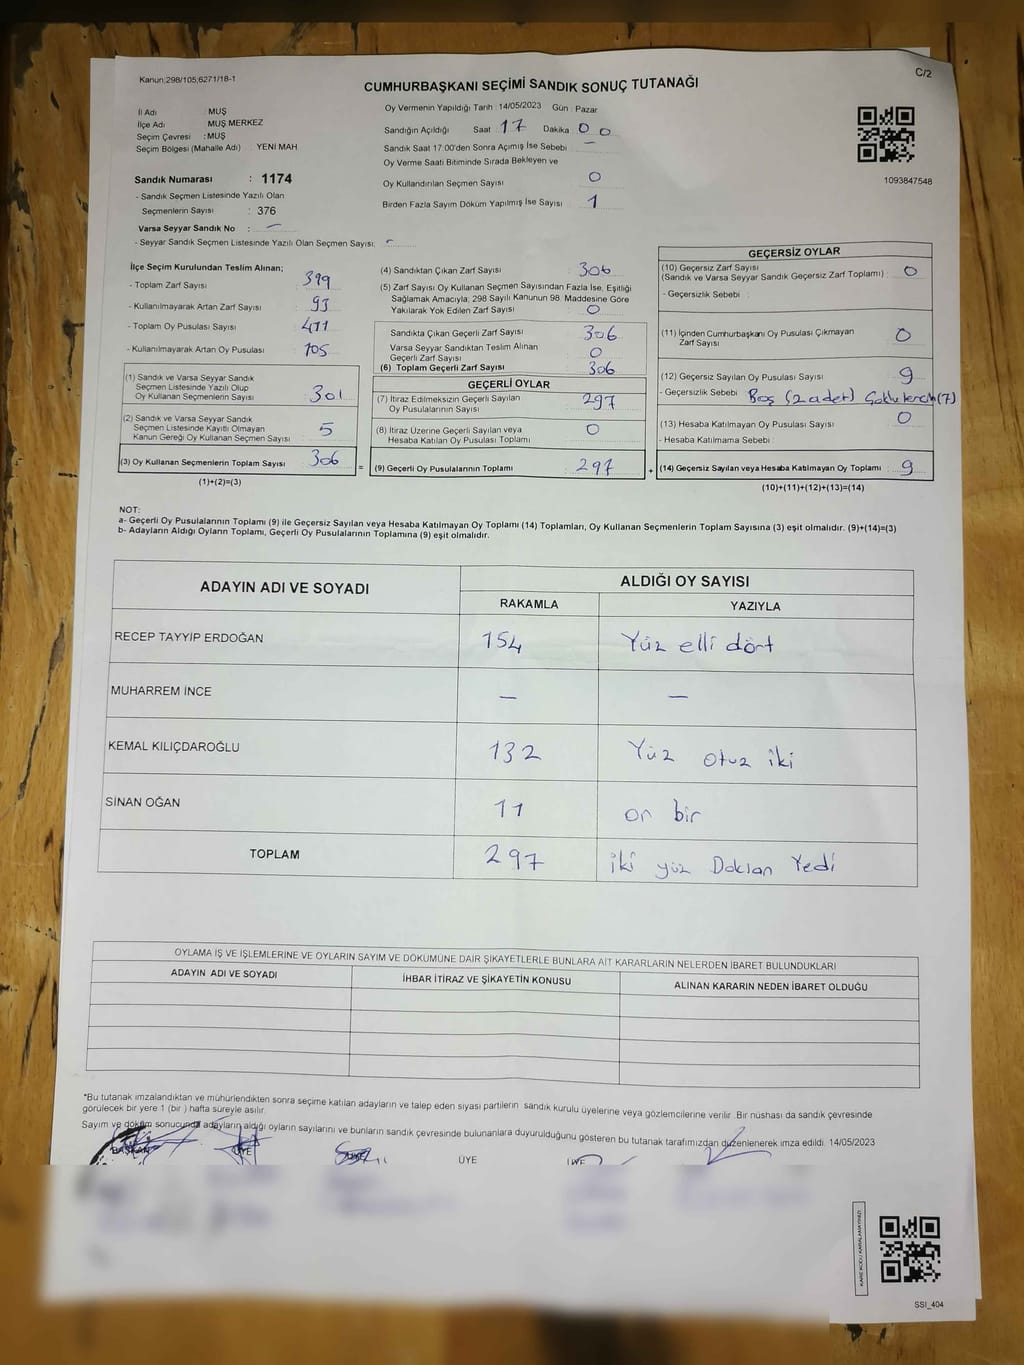 Kanun;298/105;6271/18-1
C/2
CUMHURBAŞKANI SEÇİMİ SANDIK SONUÇ TUTANAĞI
İl Adı : MUŞ
İlçe Adı : MUŞ MERKEZ
Seçim Çevresi : MUŞ
Seçim Bölgesi (Mahalle Adı) YENİ MAH
Sandık Numarası : 1174
- Sandık Seçmen Listesinde Yazılı Olan
Seçmenlerin Sayısı : 376
Varsa Seyyar Sandık No : -
- Seyyar Sandık Seçmen Listesinde Yazılı Olan Seçmen Sayısı: -
Oy Vermenin Yapıldığı Tarih : 14/05/2023 Gün : Pazar
Sandığın Açıldığı Saat 17 Dakika 00
Sandık Saat 17:00'den Sonra Açımış İse Sebebi -
Oy Verme Saati Bitiminde Sırada Bekleyen ve
Oy Kullandırılan Seçmen Sayısı 0
Birden Fazla Sayım Döküm Yapılmış İse Sayısı 1
1093847548
İlçe Seçim Kurulundan Teslim Alınan;
- Toplam Zarf Sayısı : 399
- Kullanılmayarak Artan Zarf Sayısı : 93
- Toplam Oy Pusulası Sayısı : 411
- Kullanılmayarak Artan Oy Pusulası : 105
(1) Sandık ve Varsa Seyyar Sandık
Seçmen Listesinde Yazılı Olup
Oy Kullanan Seçmenlerin Sayısı : 301
(2) Sandık ve Varsa Seyyar Sandık
Seçmen Listesinde Kayıtlı Olmayan
Kanun Gereği Oy Kullanan Seçmen Sayısı : 5
(3) Oy Kullanan Seçmenlerin Toplam Sayısı : 306
(1)+(2)=(3)
=
(4) Sandıktan Çıkan Zarf Sayısı : 306
(5) Zarf Sayısı Oy Kullanan Seçmen Sayısından Fazla İse, Eşitliği
Sağlamak Amacıyla; 298 Sayılı Kanunun 98. Maddesine Göre
Yakılarak Yok Edilen Zarf Sayısı : 0
Sandıkta Çıkan Geçerli Zarf Sayısı : 306
Varsa Seyyar Sandıktan Teslim Alınan
Geçerli Zarf Sayısı : 0
(6) Toplam Geçerli Zarf Sayısı : 306
GEÇERLİ OYLAR
(7) İtiraz Edilmeksizin Geçerli Sayılan
Oy Pusulalarının Sayısı : 297
(8) İtiraz Üzerine Geçerli Sayılan veya
Hesaba Katılan Oy Pusulası Toplamı : 0
(9) Geçerli Oy Pusulalarının Toplamı : 297
+
GEÇERSİZ OYLAR
(10) Geçersiz Zarf Sayısı
(Sandık ve Varsa Seyyar Sandık Geçersiz Zarf Toplamı) : 0
- Geçersizlik Sebebi :
(11) İçinden Cumhurbaşkanı Oy Pusulası Çıkmayan
Zarf Sayısı : 0
(12) Geçersiz Sayılan Oy Pusulası Sayısı : 9
- Geçersizlik Sebebi : Boş (2 adet) (7)
(13) Hesaba Katılmayan Oy Pusulası Sayısı : 0
- Hesaba Katılmama Sebebi :
(14) Geçersiz Sayılan veya Hesaba Katılmayan Oy Toplamı : 9
(10)+(11)+(12)+(13)=(14)
NOT:
a- Geçerli Oy Pusulalarının Toplamı (9) ile Geçersiz Sayılan veya Hesaba Katılmayan Oy Toplamı (14) Toplamları, Oy Kullanan Seçmenlerin Toplam Sayısına (3) eşit olmalıdır. (9)+(14)=(3)
b- Adayların Aldığı Oyların Toplamı, Geçerli Oy Pusulalarının Toplamına (9) eşit olmalıdır.
ADAYIN ADI VE SOYADI ALDIĞI OY SAYISI
RAKAMLA YAZIYLA
RECEP TAYYİP ERDOĞAN 154 Yüz elli dört
MUHARREM İNCE - -
KEMAL KILIÇDAROĞLU 132 Yüz otuz iki
SİNAN OĞAN 11 on bir
TOPLAM 297 iki yüz Doksan Yedi
OYLAMA İŞ VE İŞLEMLERİNE VE OYLARIN SAYIM VE DÖKÜMÜNE DAİR ŞİKAYETLERLE BUNLARA AİT KARARLARIN NELERDEN İBARET BULUNDUKLARI
ADAYIN ADI VE SOYADI İHBAR İTİRAZ VE ŞİKAYETİN KONUSU ALINAN KARARIN NEDEN İBARET OLDUĞU
*Bu tutanak imzalandıktan ve mühürlendikten sonra seçime katılan adayların ve talep eden siyasi partilerin sandık kurulu üyelerine veya gözlemcilerine verilir. Bir nüshası da sandık çevresinde
görülecek bir yere 1 (bir ) hafta süreyle asılır.
Sayım ve döküm sonucunda adayların aldığı oyların sayılarını ve bunların sandık çevresinde bulunanlara duyurulduğunu gösteren bu tutanak tarafımızdan düzenlenerek imza edildi. 14/05/2023
BAŞKAN ÜYE ÜYE ÜYE
KARE KODU KARALAMAYINIZ!
SSI_404